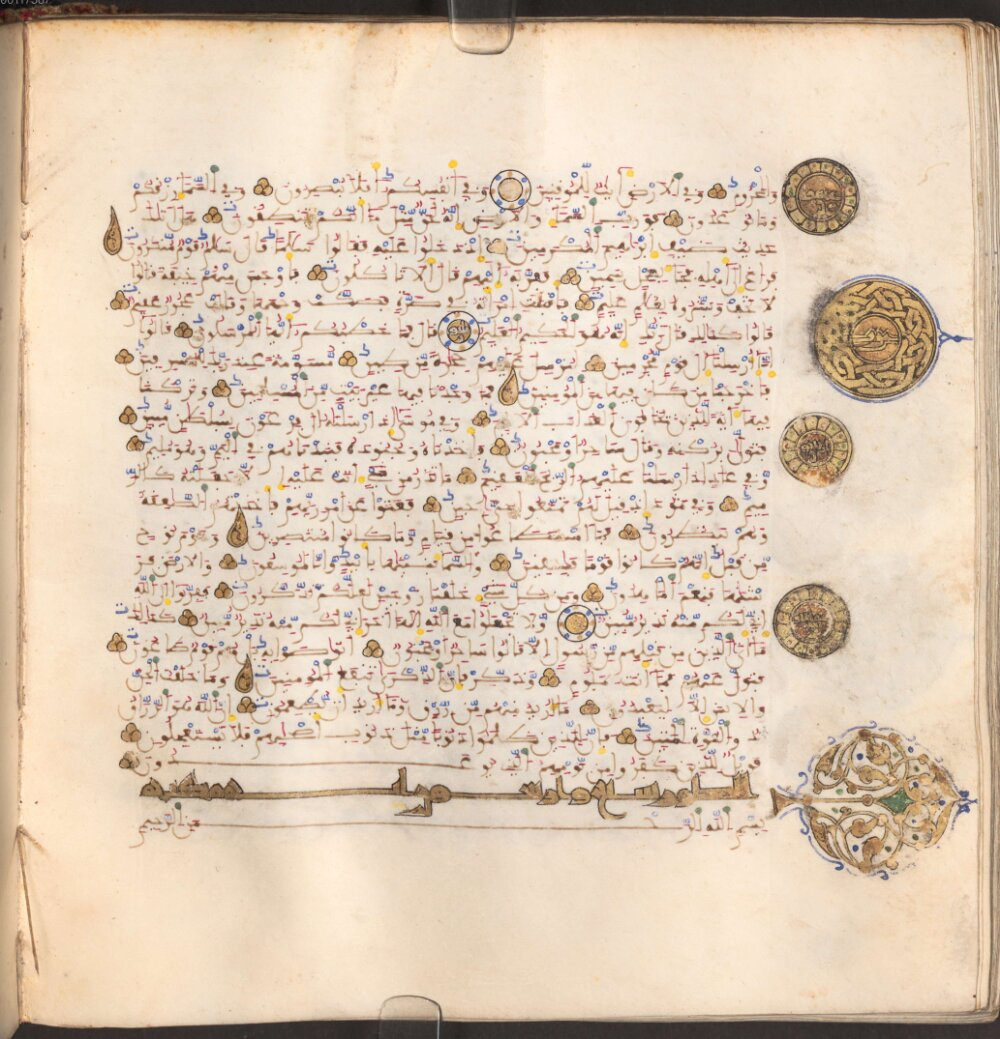 والمحروم وفي الارض ايت للموقنين وفي انفسكم افلا تبصرون وفي السماء رزقكم
وما توعدون فورب السماء والارض انه لحق مثل ما انكم تنطقون هل اتيك
حديث ضيف ابرهيم المكرمين اذ دخلوا عليه فقالوا سلما قال سلم قوم منكرون
فراغ الى اهله فجاء بعجل سمين فقربه اليهم قال الا تاكلون فاوجس منهم خيفة قالوا
لا تخف وبشروه بغلم عليم فاقبلت امراته في صرة فصكت وجهها وقالت عجوز عقيم
قالوا كذلك قال ربك انه هو الحكيم العليم قال فما خطبكم ايها المرسلون قالوا
انا ارسلنا الى قوم مجرمين لنرسل عليهم حجارة من طين مسومة عند ربك للمسرفين
فاخرجنا من كان فيها من المومنين فما وجدنا فيها غير بيت من المسلمين وتركنا
فيها اية للذين يخافون العذاب الاليم وفي موسى اذ ارسلناه الى فرعون بسلطن مبين
فتولى بركنه وقال ساحر او مجنون فاخذناه وجنوده فنبذناهم في اليم وهو مليم
وفي عاد اذ ارسلنا عليهم الريح العقيم ما تذر من شيء اتت عليه الا جعلته كالر
ميم وفي ثمود اذ قيل لهم تمتعوا حتى حين فعتوا عن امر ربهم فاخذتهم الصعقة
وهم ينظرون فما استطعوا من قيام وما كانوا منتصرين وقوم نوح
من قبل انهم كانوا قوما فسقين والسماء بنيناها باييد وانا لموسعون والارض فر
شنها فنعم المهدون ومن كل شيء خلقنا زوجين لعلكم تذكرون ففروا الى الله
اني لكم منه نذير مبين ولا تجعلوا مع الله الها اخر اني لكم منه نذير مبين كذلك
ما اتى الذين من قبلهم من رسول الا قالوا ساحر او مجنون اتواصوا به بل هم قوم طاغون
فتول عنهم فما انت بملوم وذكر فان الذكرى تنفع المومنين وما خلقت الجن
والانس الا ليعبدون ما اريد منهم من رزق وما اريد ان يطعمون ان الله هو الرزاق
ذو القوة المتين فان للذين ظلموا ذنوبا مثل ذنوب اصحبهم فلا يستعجلون
فويل للذين كفروا من يومهم الذي يوعدون
الطور سبع واربعون اية مكية
بسم الله الرحمن الرحيم